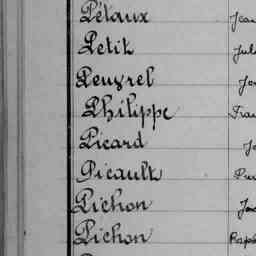 Pétaux Jean
Petit Jul
Peuvrel
Philippe Fran
Picard
Picault
Pichon
Pichon Raph